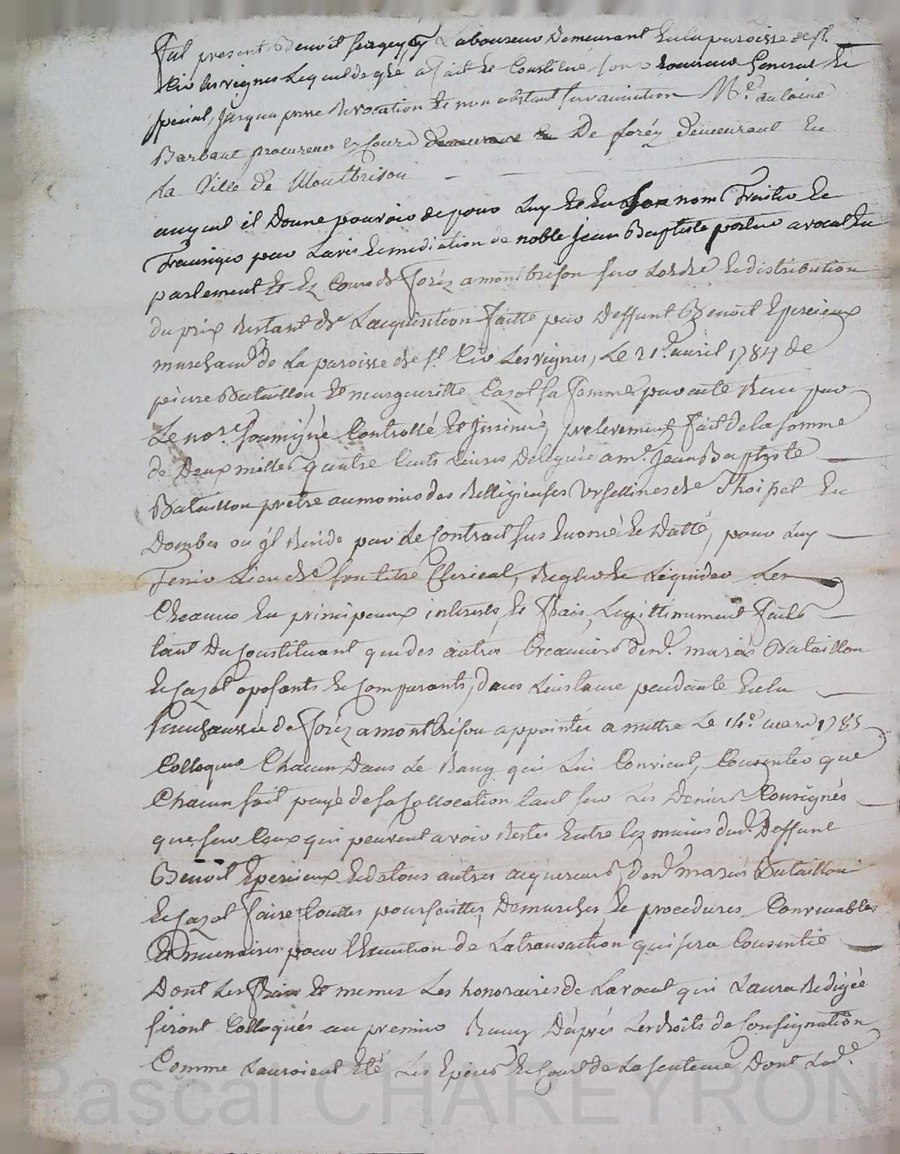 Fut present Benoit Laboureur demeurant en la paroisse de st.
les vignes Lequel de gré a fait et constitué son procureur General et
special, jusqu'a revocation et non obstant survainction Me. antoine
Barbant procureur ez cours de forêz demeurant en
La Ville de Montbrison
auquel il Donne pouvoir de pour Luy et en son nom Traiter et
Transiger par Lavis et mediation de noble jean Baptiste avocat en
parlement et ez Cours de forêz a montbrison sur Lordre et distribution
du prix Restant de Lacquisition faitte par Deffunt Benoit Epercieux
marchand de La paroisse de st. Cir Les vignes, Le 21e. avril 1784 de
pierre Bataillon et margueritte Cazot sa femme par acte Recu par
Le nore. soussigné Controllé et Insinué, prelevement fait de la somme
de Deux milles quatre Cents Livres Deleguée a mre. Jean Baptiste
Bataillon prêtre aumonier des Relligieuses Ursellines de Thoissei En
Dombes ou jl Reside par Le Contrat sus Enoncé et Datté, pour Luy
Tenir Lieu de son titre Clerical, Regler et Liquider Les
Creances En principaux interests, et frais, Legittimement faits
tant Du Constituant que des autres Creanciers dend. mariés Bataillon
et Cazot oposants et Comparants, dans Linstance pendante En la
senechaussée de forêz a montbrison appointée a mettre Le 14e. mars 1785
Colloquer Chacun Dans Le Rang qui Lui Convient, Consentir que
Chacun soit payé de sa Collocation tant sur Les Deniers Consignés
que sur Ceux qui peuvent avoir Restes Entre Les mains dud. Deffunt
Benoit Epercieux et de tous autres acquereurs, dend. mariés Bataillon
et Cazot faire touttes poursuittes, Demarches et procedures Convenables
Et necessaires pour l'Execution de La transaction qui sera Consentie
Dont Les frais et memes Les honoraires de Lavocat qui Laura Redigée
seront Colloqués au premier Rang D'aprés Les droits de Consignation
Comme Lauroient Eté Les Epices et Cout de La sentence Dont Lad.e
Pascal CHAREYRON